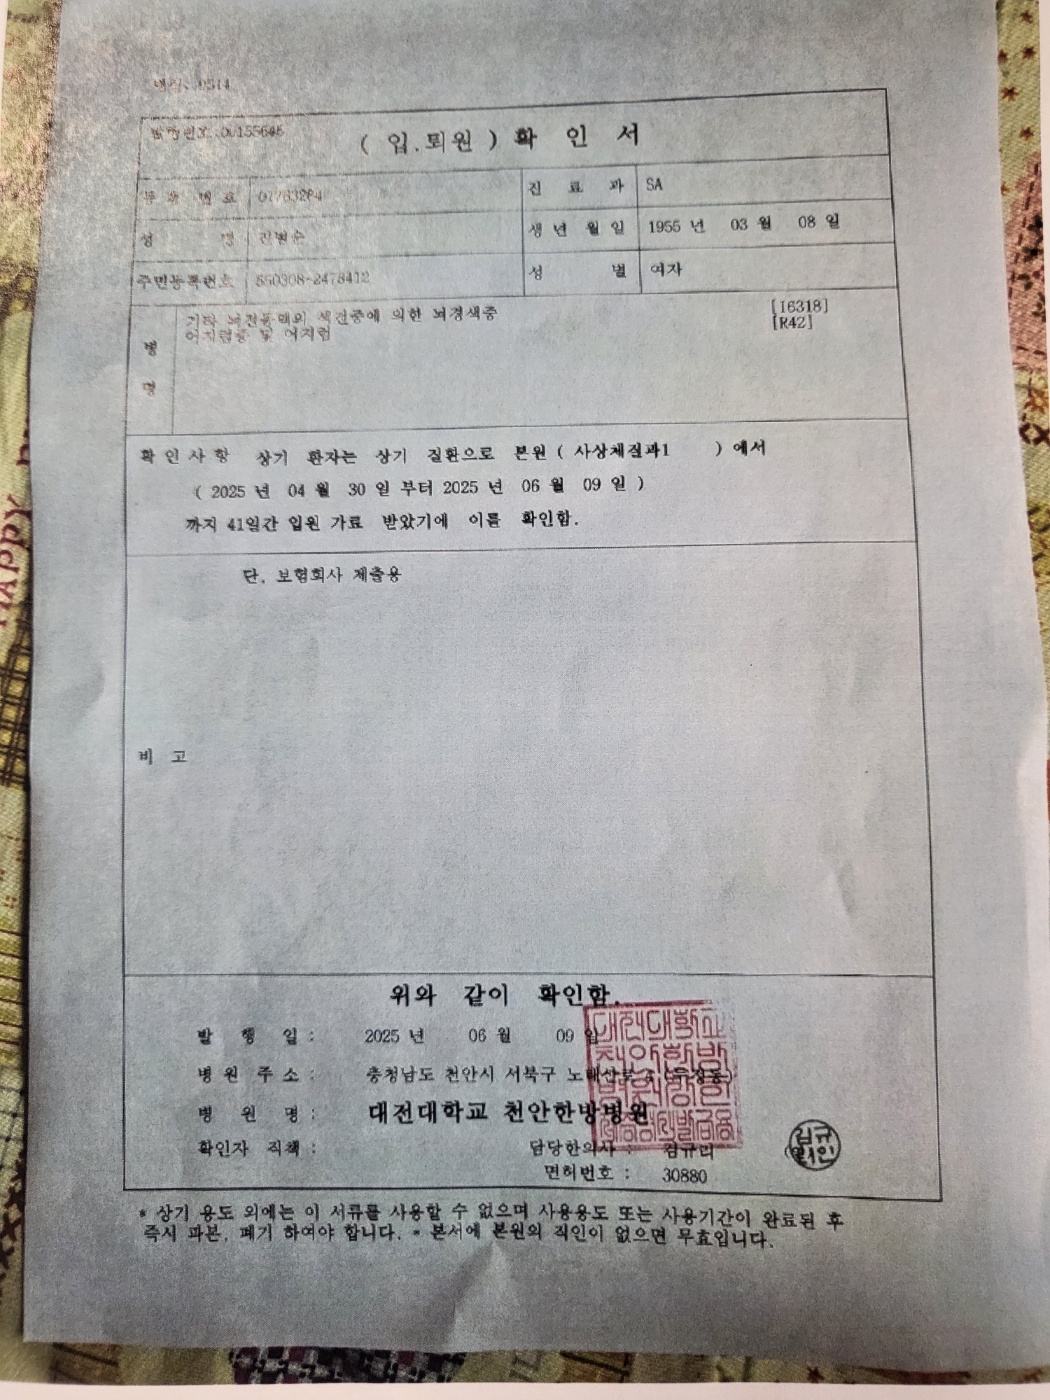 (입.퇴원)확 인 서
진 료 과 SA
성 명
생년 월일 1955 년 03 월 08 일
주민등록번호 550308-2478412
성 별 여자
병 명
기타 뇌전동맥의 색전증에 의한 뇌경색증 [I6318]
어지럼증 및 어지럼 [R42]
확인사항 상기 환자는 상기 질환으로 본원 ( 사상체질과1 ) 에서
( 2025 년 04 월 30 일 부터 2025 년 06 월 09 일 )
까지 41일간 입원 가료 받았기에 이를 확인함.
단, 보험회사 제출용
비 고
위와 같이 확인함.
발 행 일 : 2025 년 06 월 09 일
병원 주소 : 충청남도 천안시 서북구
병 원 명 : 대전대학교 천안한방병원
확인자 직책 : 담당한의사 : 김규리
면허번호 : 30880
* 상기 용도 외에는 이 서류를 사용할 수 없으며 사용용도 또는 사용기간이 완료된 후
즉시 파본, 폐기 하여야 합니다. * 본서에 본원의 직인이 없으면 무효입니다.